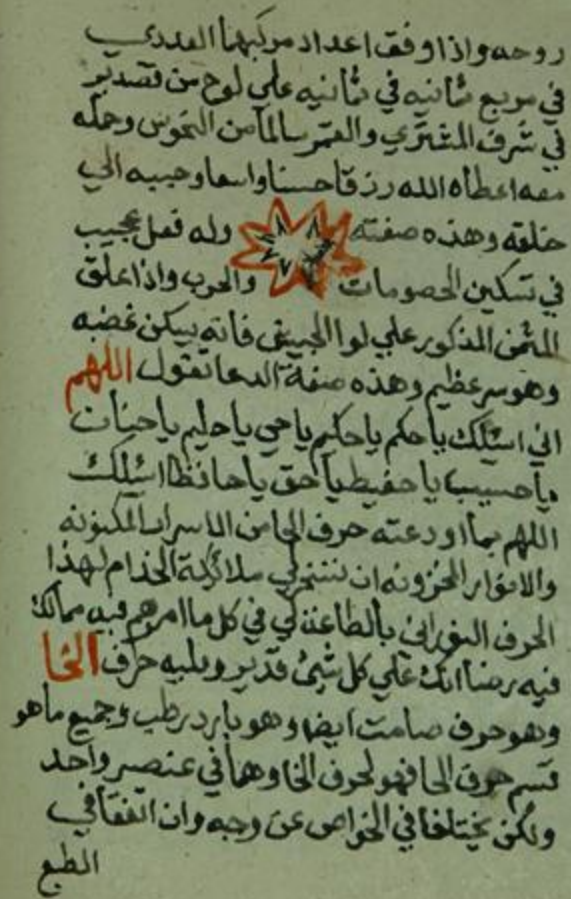 روحه واذا وفق اعداد مركبهما العددي
في مربع ثمانيه في ثمانيه علي لوح من قصدير
في شرف المشتري والقمر سالما من النحوس وحمله
معه اعطاه الله رزقا حسنا واسعا وحببه الي
خلقه وهذه صفته وله فعل عجيب
في تسكين الخصومات والحرب واذا علق
المثمن المذكور علي لوا الجيش فانه يسكن غضبه
وهو سر عظيم وهذه صفة الدعا تقول اللهم
اني اسئلك يا حكم يا حكيم يا حي يا حليم يا حنان
يا حسيب يا حفيظ يا حق يا حافظ اسئلك
اللهم بما اودعته حرف الحا من الاسرار المكنونه
والانوار المخزونه ان تسخر لي ملائكة الخدام لهذا
الحرف النوراني بالطاعة لي في كل ما امرهم فيه مما لك
فيه رضا انك علي كل شئ قدير ويليه حرف الخا
وهو حرف صامت ايضا وهو بارد رطب وجميع ما هو
قسم حرف الحا فهو لحرف الخا وهما في عنصر واحد
ولكن يختلفا في الخواص عن وجه وان اتفقا في
الطبع